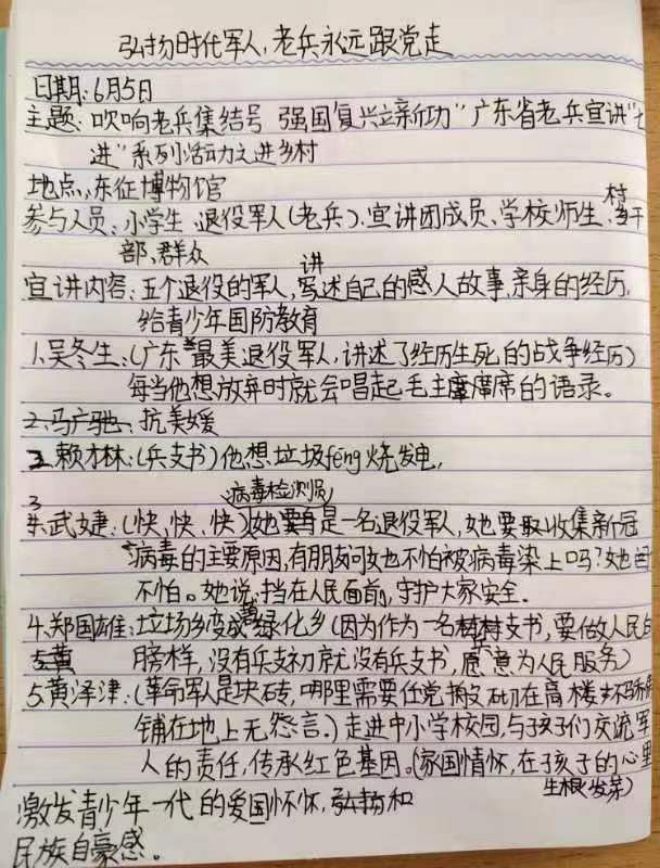 弘扬时代军人,老兵永远跟党走
日期:6月5日
主题:吹响老兵集结号 强国复兴立新功"广东省老兵宣讲"七
进"系列活动之进乡村
地点:东征博物馆
参与人员:小学生、退役军人(老兵)、宣讲团成员、学校师生、村干
部、群众
宣讲内容:五个退役的军人,讲述自己的感人故事,亲身的经历,
给青少年国防教育
1.吴冬生:(广东最美退役军人,讲述了经历生死的战争经历)
每当他想放弃时就会唱起毛主席的语录。
2.马广驰、抗美媛
2.赖才林:(兵支书)他想垃圾fēng烧发电,
病毒检测员
3.武婕:(快、快、快)她是一名退役军人,她要取收集新冠
病毒的主要原因,有朋友问她不怕被病毒染上吗?她回
不怕。她说:挡在人民面前,守护大家安全.
4.郑国雄:垃场乡变成碧绿化乡(因为作为一名村支书,要做人民的
膀样,没有兵支初就没有兵支书,愿意为人民服务)
5.黄泽津:(革命军人是块砖,哪里需要任党搬,砌在高楼不骄
铺在地上无怨言.)走进中小学校园,与孩子们交流军
人的责任,传承红色基因。(家国情怀,在孩子的心里
生根发芽)
激发青少年一代的爱国怀怀,弘扬和
民族自豪感。